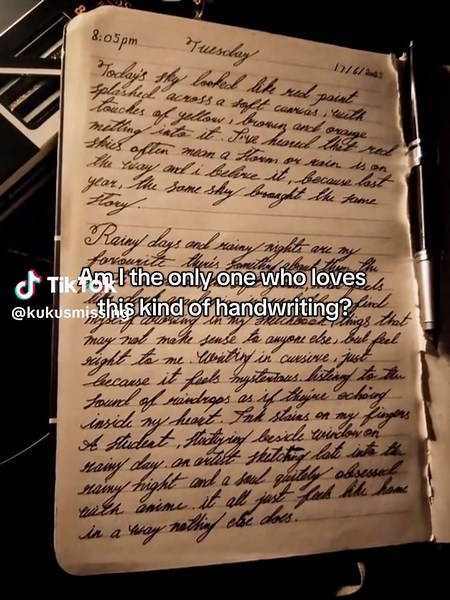 8:05pm
Tuesday
17/6/2025
Today's sky looked like red paint
splashed across a soft canvas, with
touches of yellow, brown, and orange
melting into it. I've heared that red
skies often mean a storm or rain is on
the way and i belive it, because last
year, the same sky brought the same
story.
Rainy days and rainy nights are my
favourite
Am I the only one who loves
this kind of handwriting?
TikTok
@kukusmissing
find
myself drawing in my sketchbook, things that
may not make sense to anyone else, but feel
right to me. Writing in cursive, just
because it feels mysterious, listing to the
sound of raindrops as if they're echoing
inside my heart. Ink stains on my fingers
A student, studying beside window on
rainy day, an artist sketching late into the
rainy night and a soul quitely obsessed
with anime. it all just feels like home
in a way nothing else does.